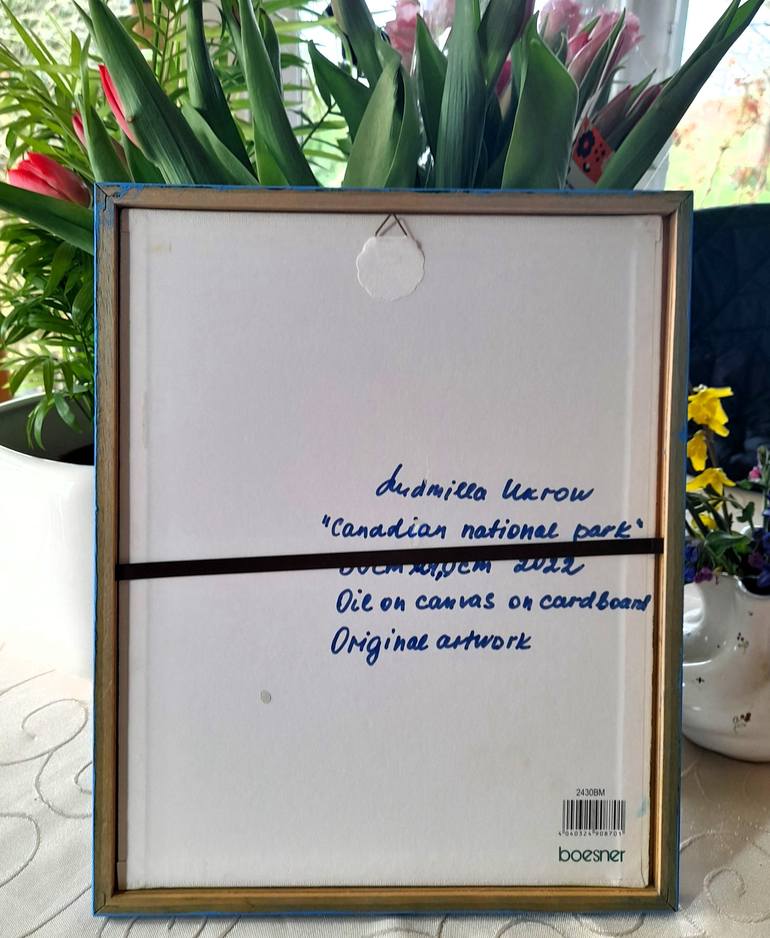 Ludmilla Ukrow
"Canadian national park"
2022
Oil on canvas on cardboard
Original artwork
2430BM
4 040324 908701
boesner